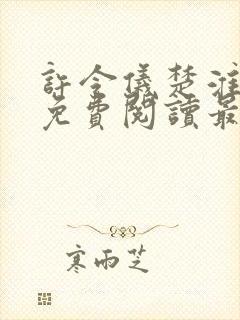 許令儀楚淮
免費閱讀最
寒雨芝